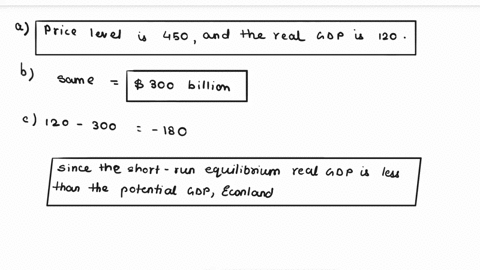 a) Price level is 450, and the real GDP is 120.
b) same = $300 billion
c) 120 - 300 = -180
since the short-run equilibrium real GDP is less
than the potential GDP, Econland